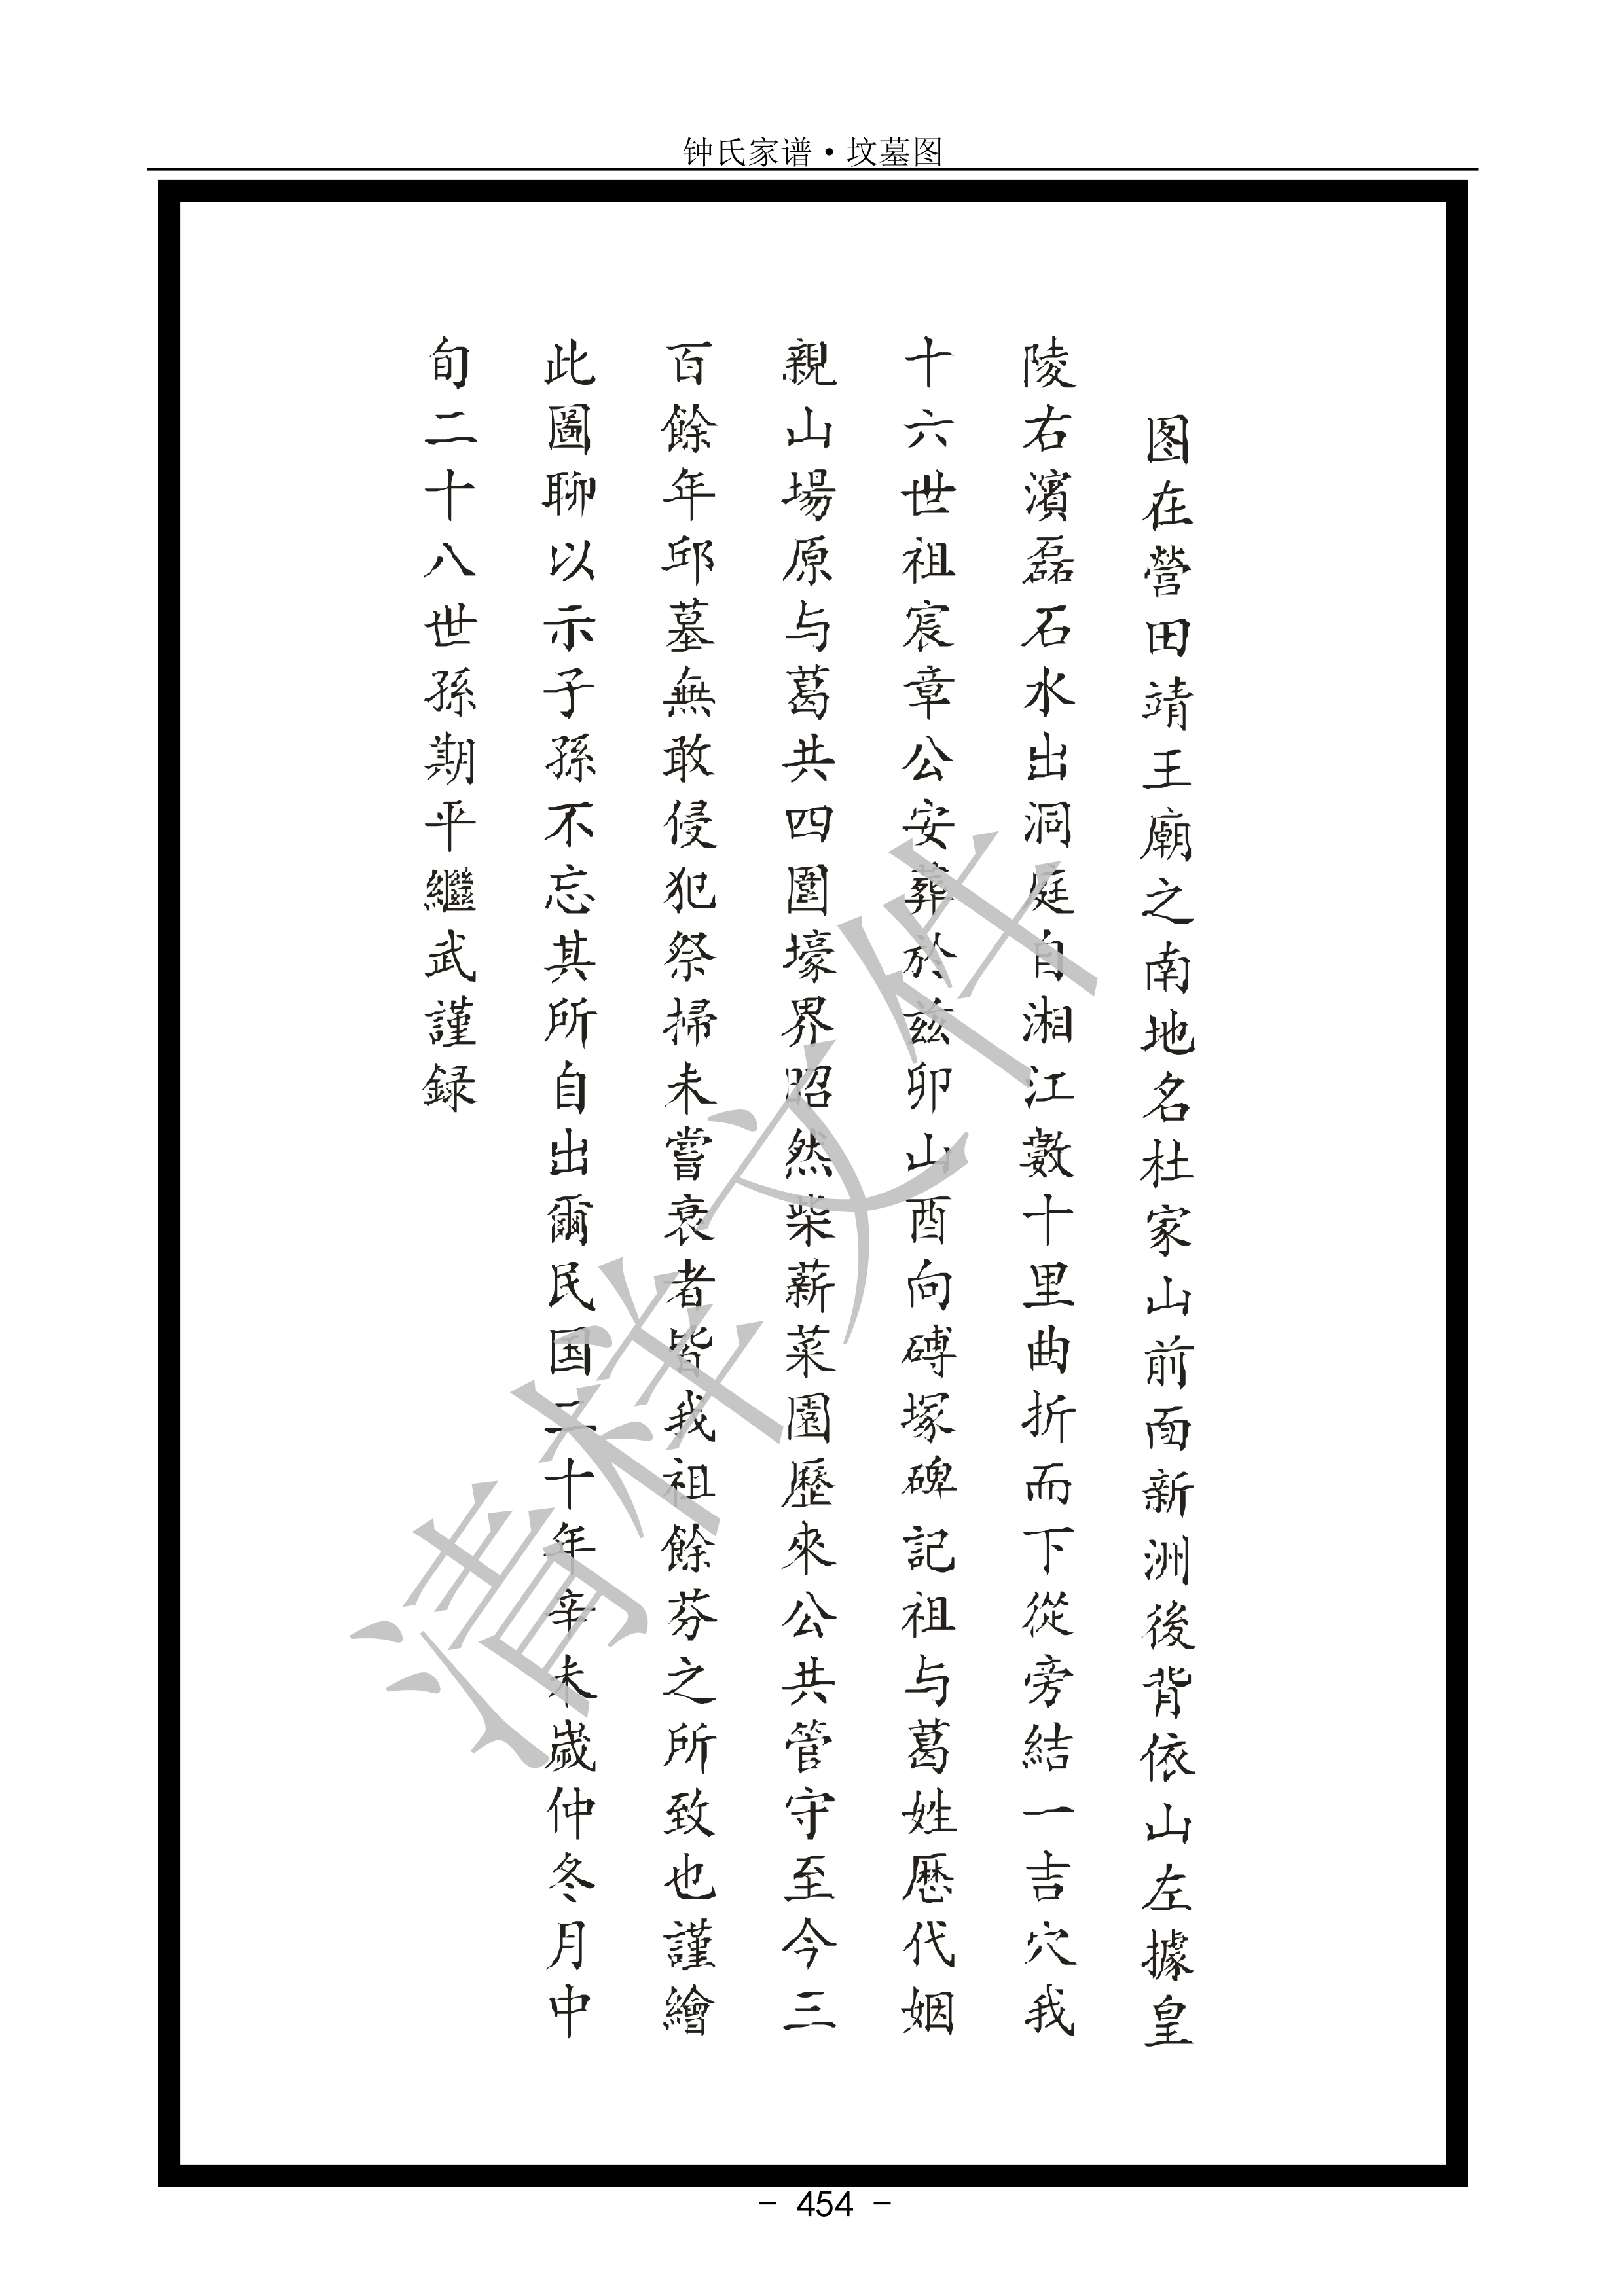 钟氏家谱·坟墓图
图在營田靖王廟之南地名杜家山前面新洲後背依山左據皇
陵右濱磊石水出洞庭自湘江數十里曲折而下從旁結一吉穴我
十六世祖宸章公安葬於兹卯山酉向磚塚碑記祖与葛姓歷代姻
親山場原与葛共四圍壕界昭然柴薪菜園歷來公共管守至今三
百餘年邱墓無敢侵犯祭掃未嘗衰者皆我祖餘芬之所致也謹繪
此圖聊以示子孫不忘其所自出爾民国二十年辛未歲仲冬月中
旬二十八世孫期平繼武謹録
清样文件
- 454 -